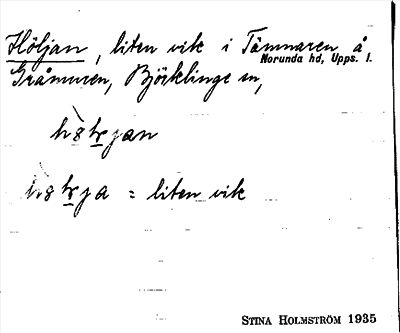 Höljan, liten vik i Tämnaren å
Norunda hd, Upps. l.
Gråmuren, Björklinge sn,
= liten vik
STINA HOLMSTRÖM 1935